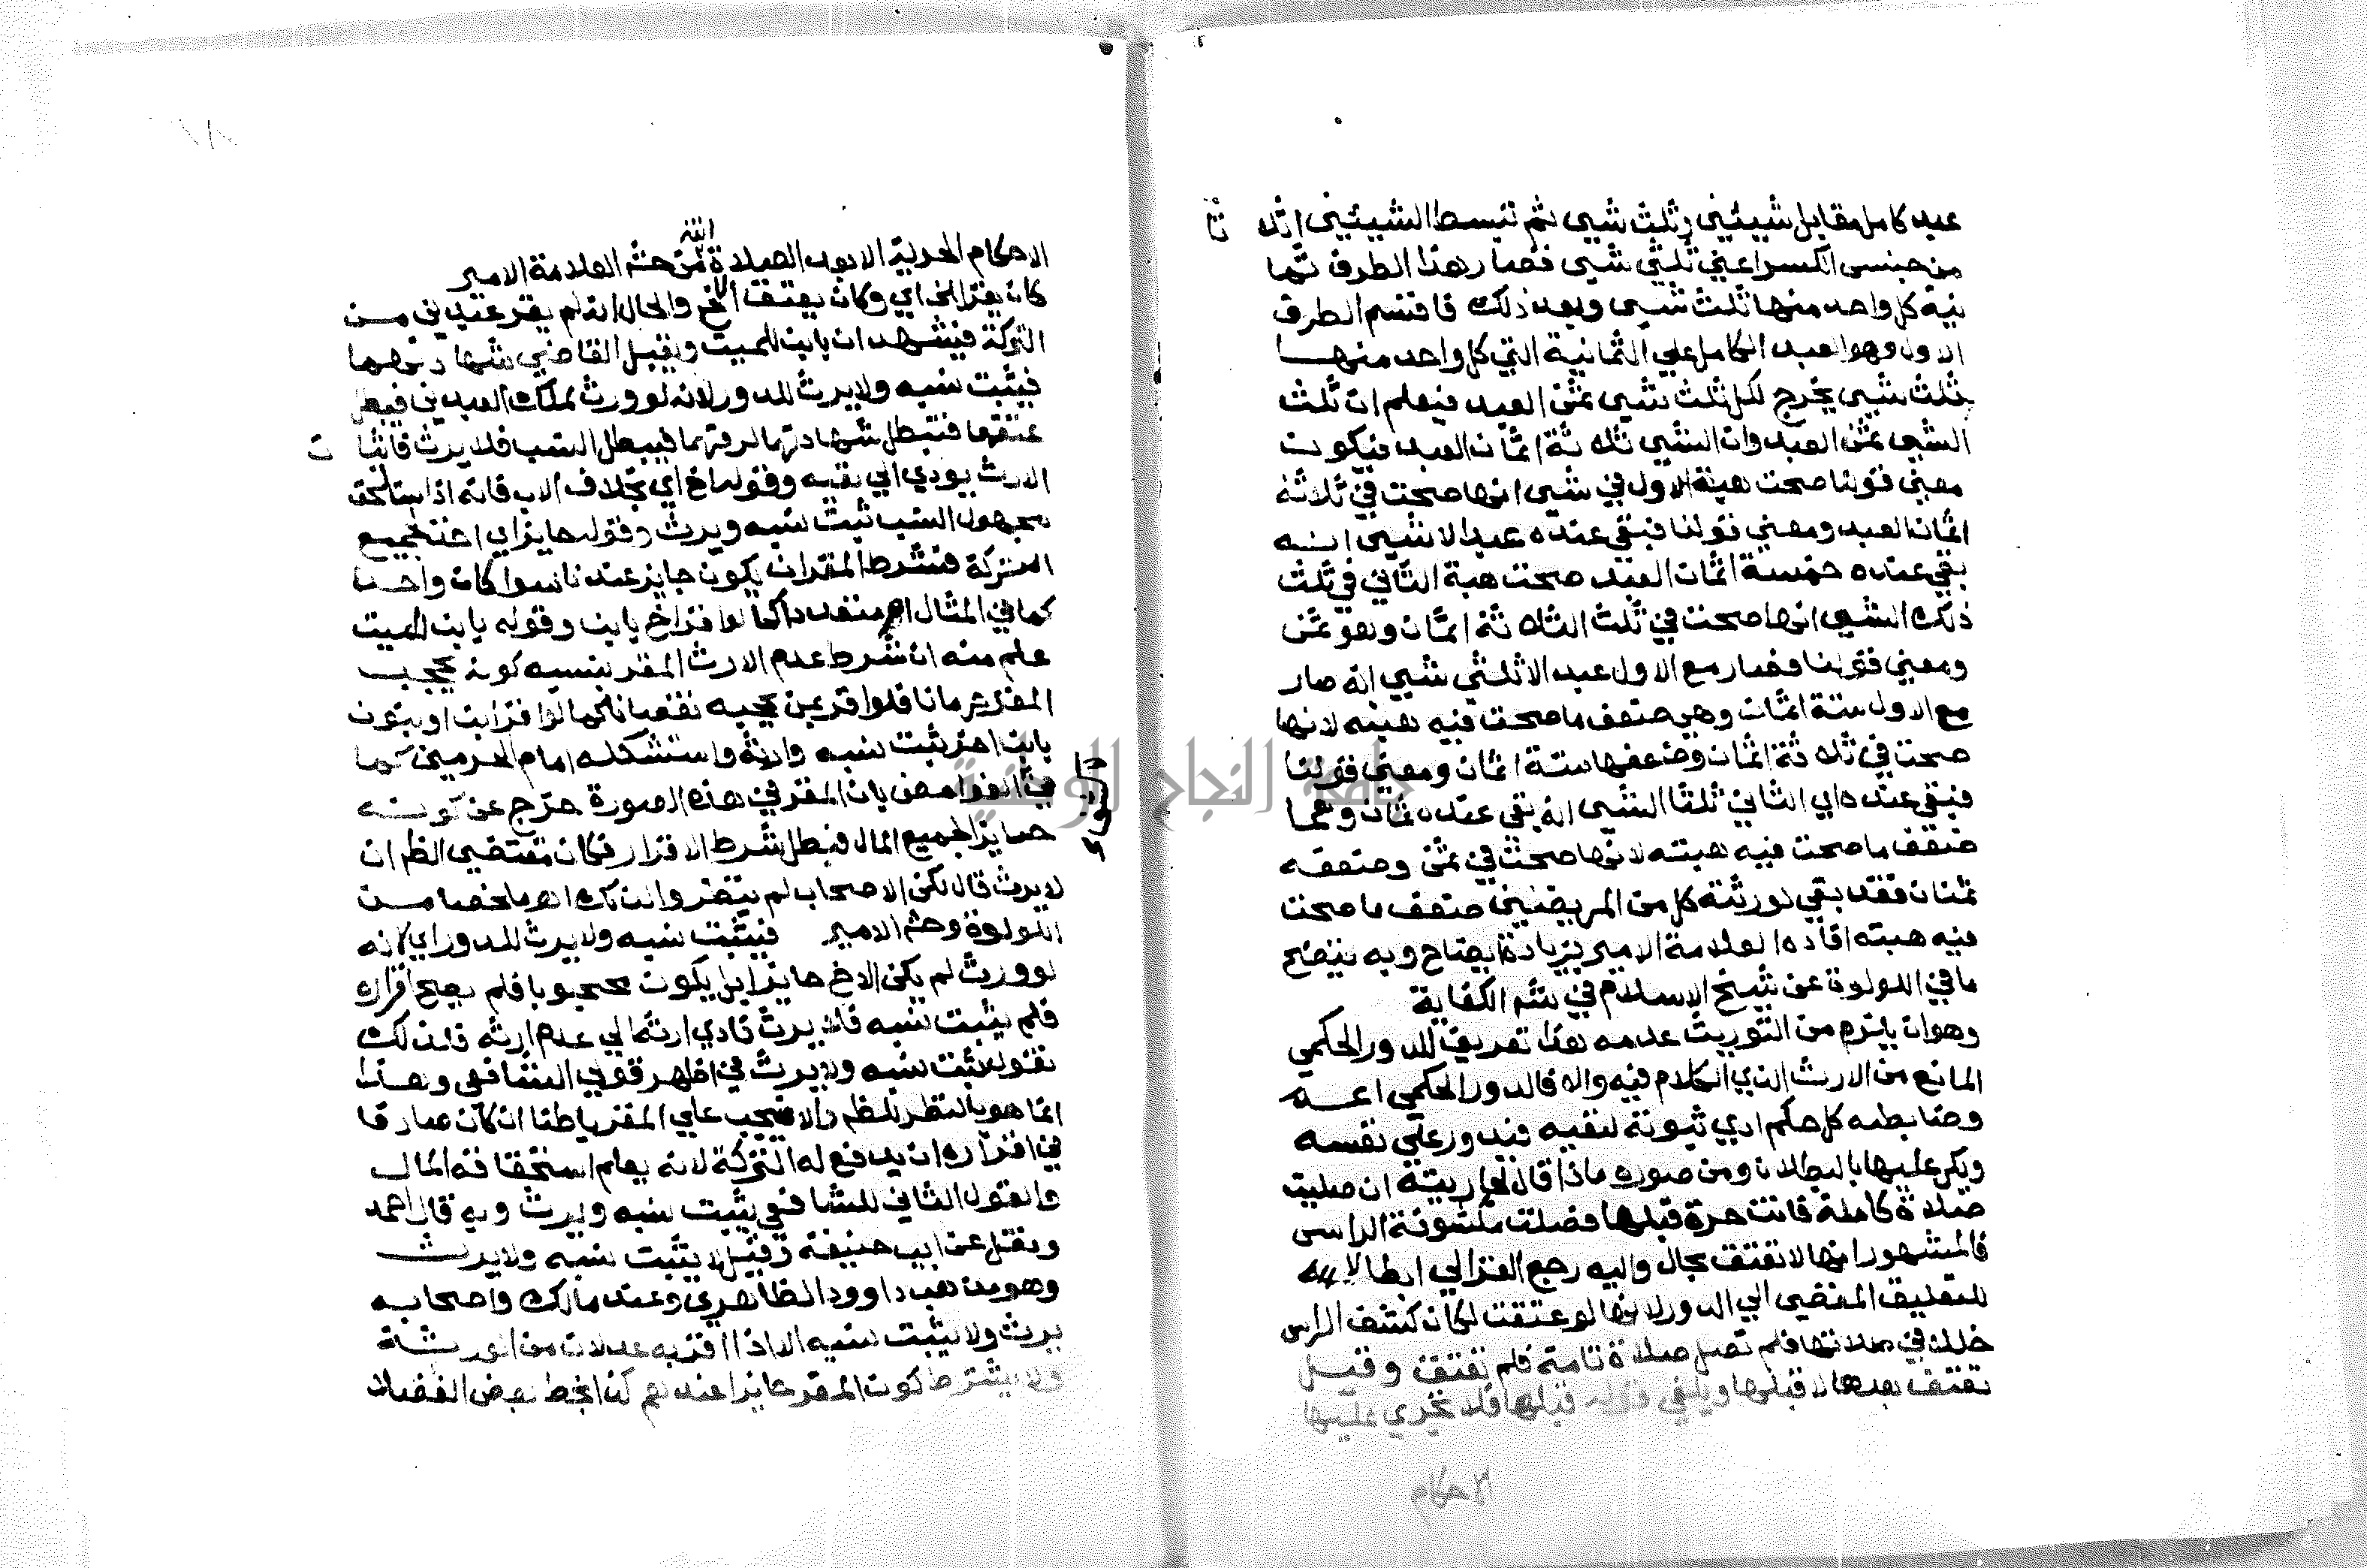 عبد كامل مقابل شيئين وثلث شيى ثم تبسط الشيئين اثلا ثا
من جنس الكسر اعني ثلثي شيى فصار هذا الطرف ثما
نية كل واحد منها ثلث شيى وبعد ذلك فاقسم الطرف
الاول وهو العبد الكامل علي الثمانية التي كل واحد منها
ثلث شيى يخرج لكل ثلث شيى ثمن العبد فيعلم ان ثلث
الشيى ثمن العبد وان الشيى ثلاثة اثمان العبد فيكون
معني قولنا صحت هبة الاول في شيى انها صحت في ثلاثة
اثمان العبد ومعني قولنا فبقي عنده عبد الا شيى انه
بقي عنده خمسة اثمان العبد صحت هبة الثاني في ثلث
ذلك الشيى انها صحت في ثلث الثلاثة اثمان وهو ثمن
ومعني قولنا فصار مع الاول عبد الا ثلثي شيى انه صار
مع الاول ستة اثمان وهي ضعف ما صحت فيه هبته لانها
صحت في ثلاثة اثمان وضعفها ستة اثمان ومعني قولنا
فبقي عنده اي الثاني ثلثا الشيى انه بقي عنده ثمنان وهما
ضعف ما صحت فيه هبته لانها صحت في ثمن وضعفه
ثمنان فقد بقي لورثة كل من المريضين ضعف ما صحت
فيه هبته افاده العلامة الامير بزيادة ايضاح وبه يتضح
ما في اللولوة عن شيخ الاسلام في شر الكفاية
وهو ان يلزم من التوريث عدمه هذا تعريف للدور الحكمي
المانع من الارث الذي الكلام فيه والا فالدور الحكمي اعم
وضابطه كل حكم ادي ثبوته لنفيه فيدور علي نفسه
ويكر عليها بالبطلان ومن صوره ماذا قال لجاريته ان صليت
صلاة كاملة فانت حرة قبلها فصلت مكشوفة الراس
فالمشهور انها لا تعتق بحال واليه رجع الغزالي ابطالا
للتعليق المفضي الي الدور لانها لو عتقت لكان كشف الراس
خللا في صلاتها فلم تصل صلاة تامة فلم تعتق وقيل
تعتق بعدها لا قبلها ويلغي قوله قبلها فلا تجري عليها
الاحكام
الاحكام الحرية الا بعد الصلاة من حشه العلامة الامير
كان يقر الخ اي وكان يعتق الاخ والحال انه لم يقر عبدين من
التركة فيشهدان بابن للميت ويقبل القاضي شهادتهما
فيثبت نسبه ولا يرث للدور لانه لو ورث لملك العبدين فيبطل
عتقهما فتبطل شهادتهما لرقهما فيبطل النسب فلا يرث فاثبات
الارث يودي الي نفيه وقوله اخ اي بخلاف الاب فانه اذا استلحق
مجهول النسب ثبت نسبه ويرث وقوله حايز اي اخذ لجميع
التركة فشرط المقر ان يكون حايز عندنا سوا كان واحدا
كما في المثال ام متعددا كما لو اقر اخ بابن وقوله بابن للميت
علم منه ان شرط عدم الارث المقر بنسبه كونه يحجب
المقر حرمانا فلو اقر بمن يحجبه نقصانا كما لو اقر ابن او بنون
بابن اخر ثبت نسبه وارثه واستشكله امام الحرمين كما
في الغوامض بان المقر في هذه الصورة خرج عن كونه
حايز الجميع المال فبطل شرط الاقرار فكان مقتضي النظر ان
لا يرث قال لكن الاصحاب لم ينظروا لذلك اه ملخصا من
اللولوة وحش الامير فيثبت نسبه ولا يرث للدور اي لانه
لو ورث لم يكن الاخ حايزا بل يكون محجوبا فلم يصح اقراره
فلم يثبت نسبه فلا يرث فادي ارثه الي عدم ارثه فلذلك
نقول يثبت نسبه ولا يرث في اظهر قولي الشافعي وهذا
انما هو بالنظر للظاهر والا فيجب علي المقر باطنا ان كان صادقا
في اقراره ان يدفع له التركة لانه يعلم استحقاقه المال
والقول الثاني للشافعي يثبت نسبه ويرث وبه قال احمد
ونقل عن ابي حنيفة وقيل لا يثبت نسبه ولا يرث
وهو مذهب داوود الظاهري وعند مالك واصحابه
يرث ولا يثبت نسبه الا اذا اقر به عدلان من الورثة
ولا يشترط كون المقر حايزا عنده نعم كذا بخط بعض الفضلا
جامعة النجاح الوطنية